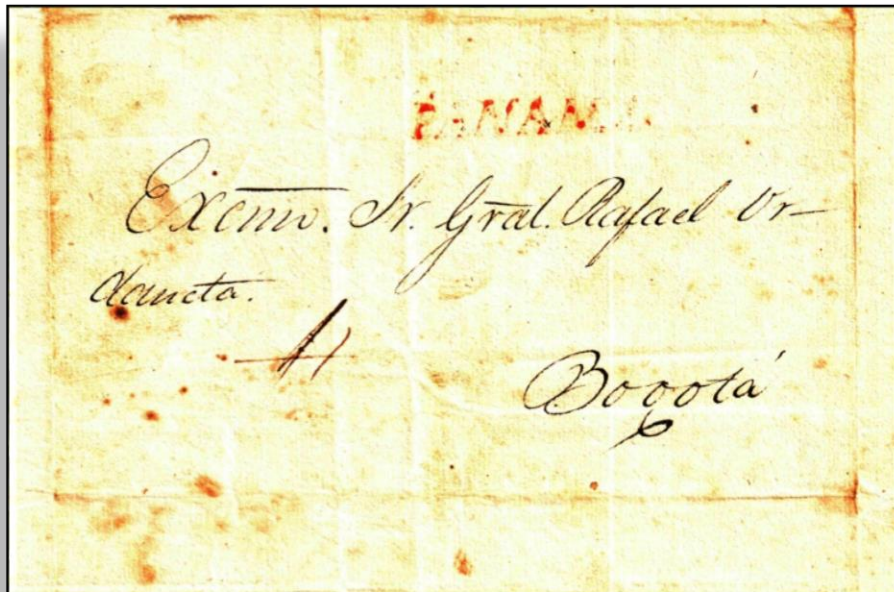 PANAMA
Excmo. Sr. Gral. Rafael Ur-
daneta.
Bogotá